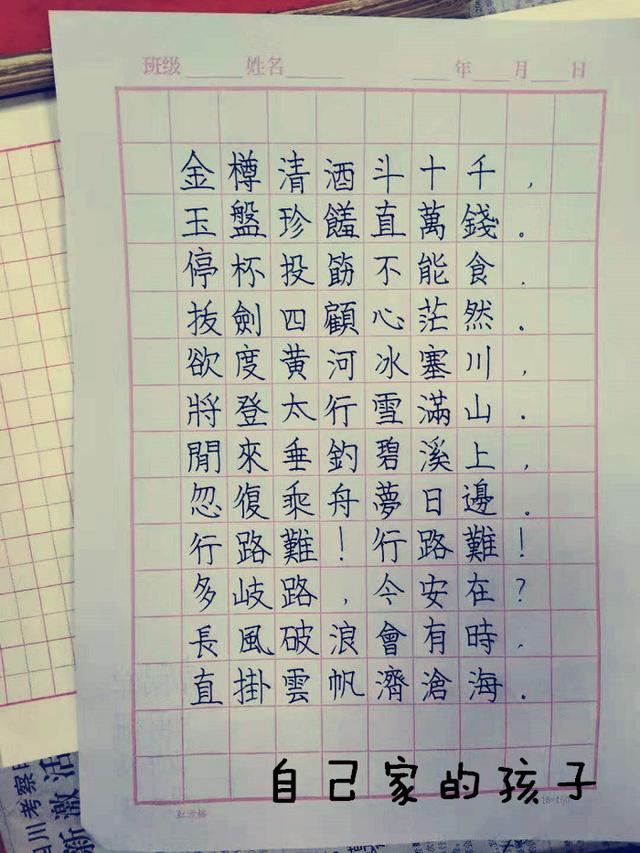 班级 姓名 年 月 日
金樽清酒斗十千,
玉盤珍饈直萬錢。
停杯投筯不能食.
拔劍四顧心茫然.
欲度黄河冰塞川,
將登太行雪滿山.
閒來垂釣碧溪上,
忽復乘舟夢日邊.
行路難!行路難!
多岐路,今安在?
長風破浪會有時.
直掛雲帆濟滄海.
自己家的孩子